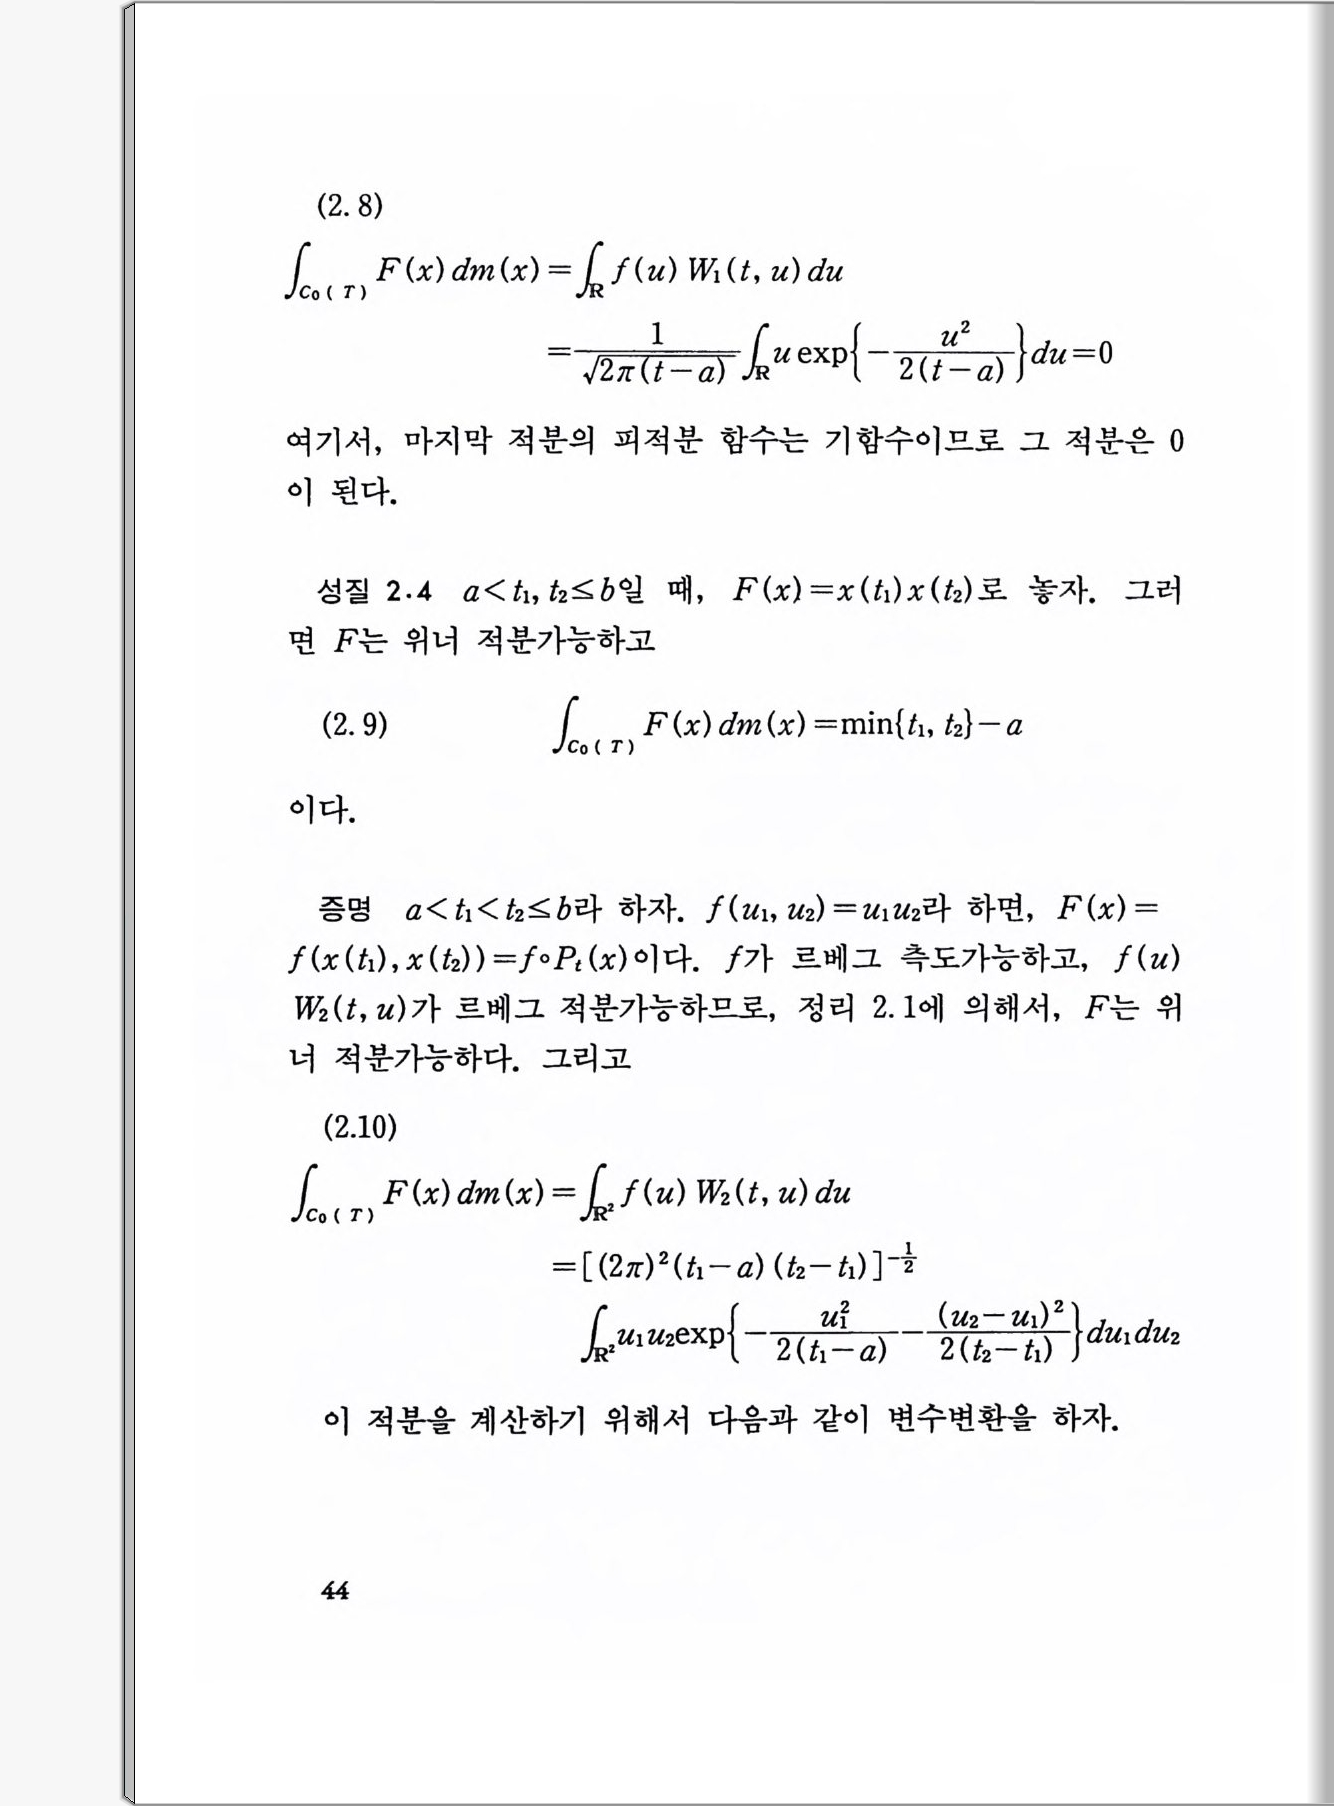 (2. 8)
∫_{C₀(T)} F(x) dm(x) = ∫_R f(u) W₁(t, u) du
= 1/√(2π(t−a)) ∫_R u exp{−u²/(2(t−a))} du = 0
여기서, 마지막 적분의 피적분 함수는 기함수이므로 그 적분은 0
이 된다.
성질 2.4 a<t₁, t₂≤b일 때, F(x)=x(t₁)x(t₂)로 놓자. 그러
면 F는 위너 적분가능하고
(2. 9) ∫_{C₀(T)} F(x) dm(x) = min{t₁, t₂}−a
이다.
증명 a<t₁<t₂≤b라 하자. f(u₁, u₂)=u₁u₂라 하면, F(x)=
f(x(t₁), x(t₂))=f∘P_t(x)이다. f가 르베그 측도가능하고, f(u)
W₂(t, u)가 르베그 적분가능하므로, 정리 2.1에 의해서, F는 위
너 적분가능하다. 그리고
(2.10)
∫_{C₀(T)} F(x) dm(x) = ∫_{R²} f(u) W₂(t, u) du
= [(2π)²(t₁−a)(t₂−t₁)]^{−1/2}
∫_{R²} u₁u₂ exp{−u₁²/(2(t₁−a)) − (u₂−u₁)²/(2(t₂−t₁))} du₁du₂
이 적분을 계산하기 위해서 다음과 같이 변수변환을 하자.
44